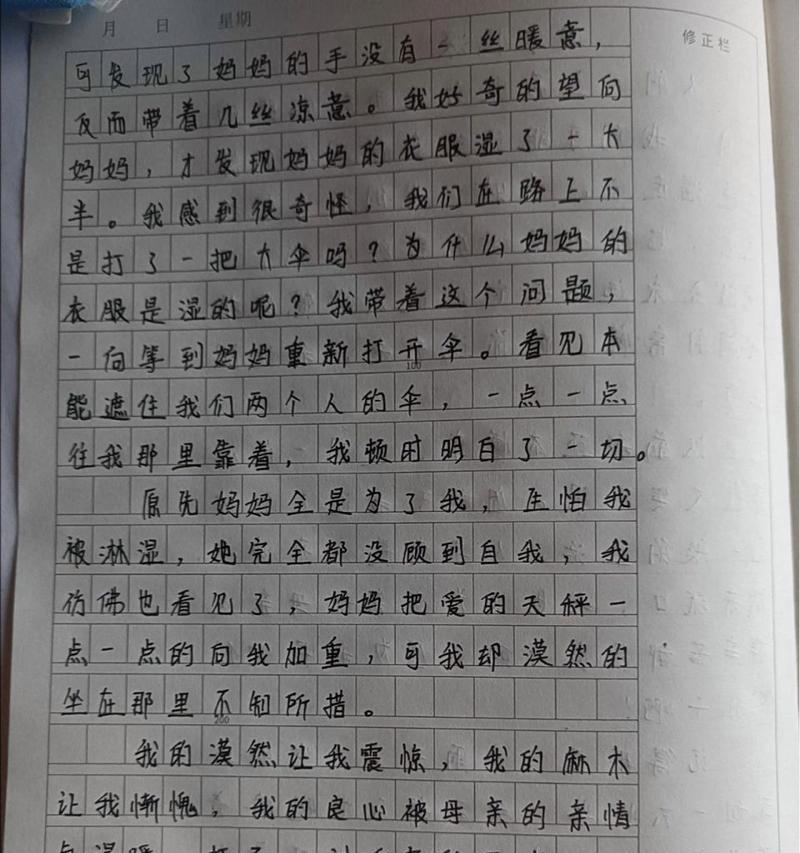 月 日 星期
修正栏
可发现了妈妈的手没有一丝暖意，
反而带着几丝凉意。我好奇的望向
妈妈，才发现妈妈的衣服湿了一大
半。我感到很奇怪，我们在路上不
是打了一把大伞吗？为什么妈妈的
衣服是湿的呢？我带着这个问题，
一向等到妈妈重新打开伞。看见本
100
能遮住我们两个人的伞，一点一点
往我那里靠着，我顿时明白了一切。
原先妈妈全是为了我，生怕我
被淋湿，她完全都没顾到自我，我
仿佛也看见了，妈妈把爱的天秤一
点一点的向我加重，可我却漠然的
坐在那里不知所措。
200
我的漠然让我震惊，我的麻木
让我惭愧，我的良心被母亲的亲情